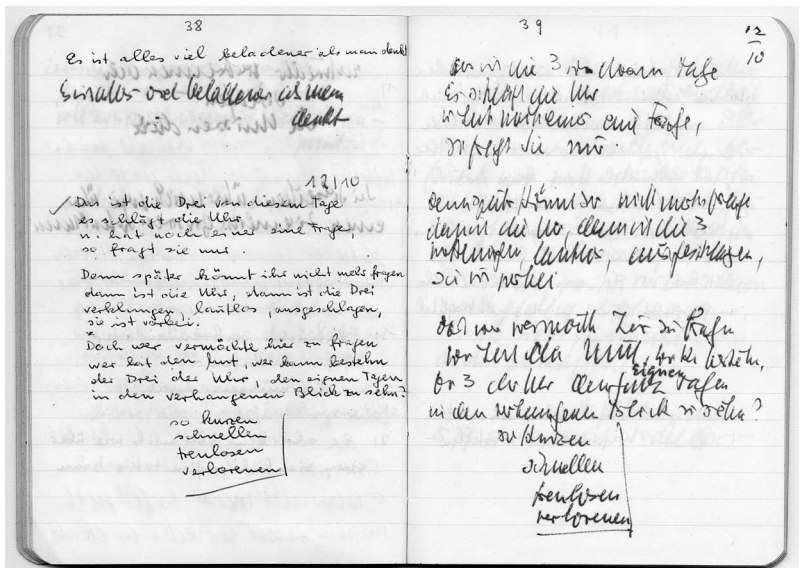 38
Es ist alles viel beladener als man denkt
Es ist alles viel beladener als man
denkt
12/10
Das ist die Drei von diesem Tage
es schlägt die Uhr
u. hat noch einer eine Frage,
so fragt sie nur.
Denn später könnt ihr nicht mehr fragen
dann ist die Uhr, dann ist die Drei
verklungen, lautlos, ausgeschlagen,
sie ist vorbei.
Doch wer vermöchte hier zu fragen
wer hat den Mut, wer kann bestehn
der Drei der Uhr, den eignen Tagen
in den verhangenen Blick zu sehn?
so kurzen
schnellen
treulosen
verlorenen
39
12/10
das ist die 3 von diesem Tage
es schlägt die Uhr
u hat noch einer eine Frage,
so fragt sie nur.
denn später könnt ihr nicht mehr fragen
dann ist die Uhr, dann ist die 3
verklungen, lautlos, ausgeschlagen,
sie ist vorbei
doch wer vermöcht hier zu fragen
wer hat den Mut, wer kann bestehn,
der 3 der Uhr den eignen Tagen
in den verhangenen Blick zu sehn?
so kurzen
schnellen
treulosen
verlorenen